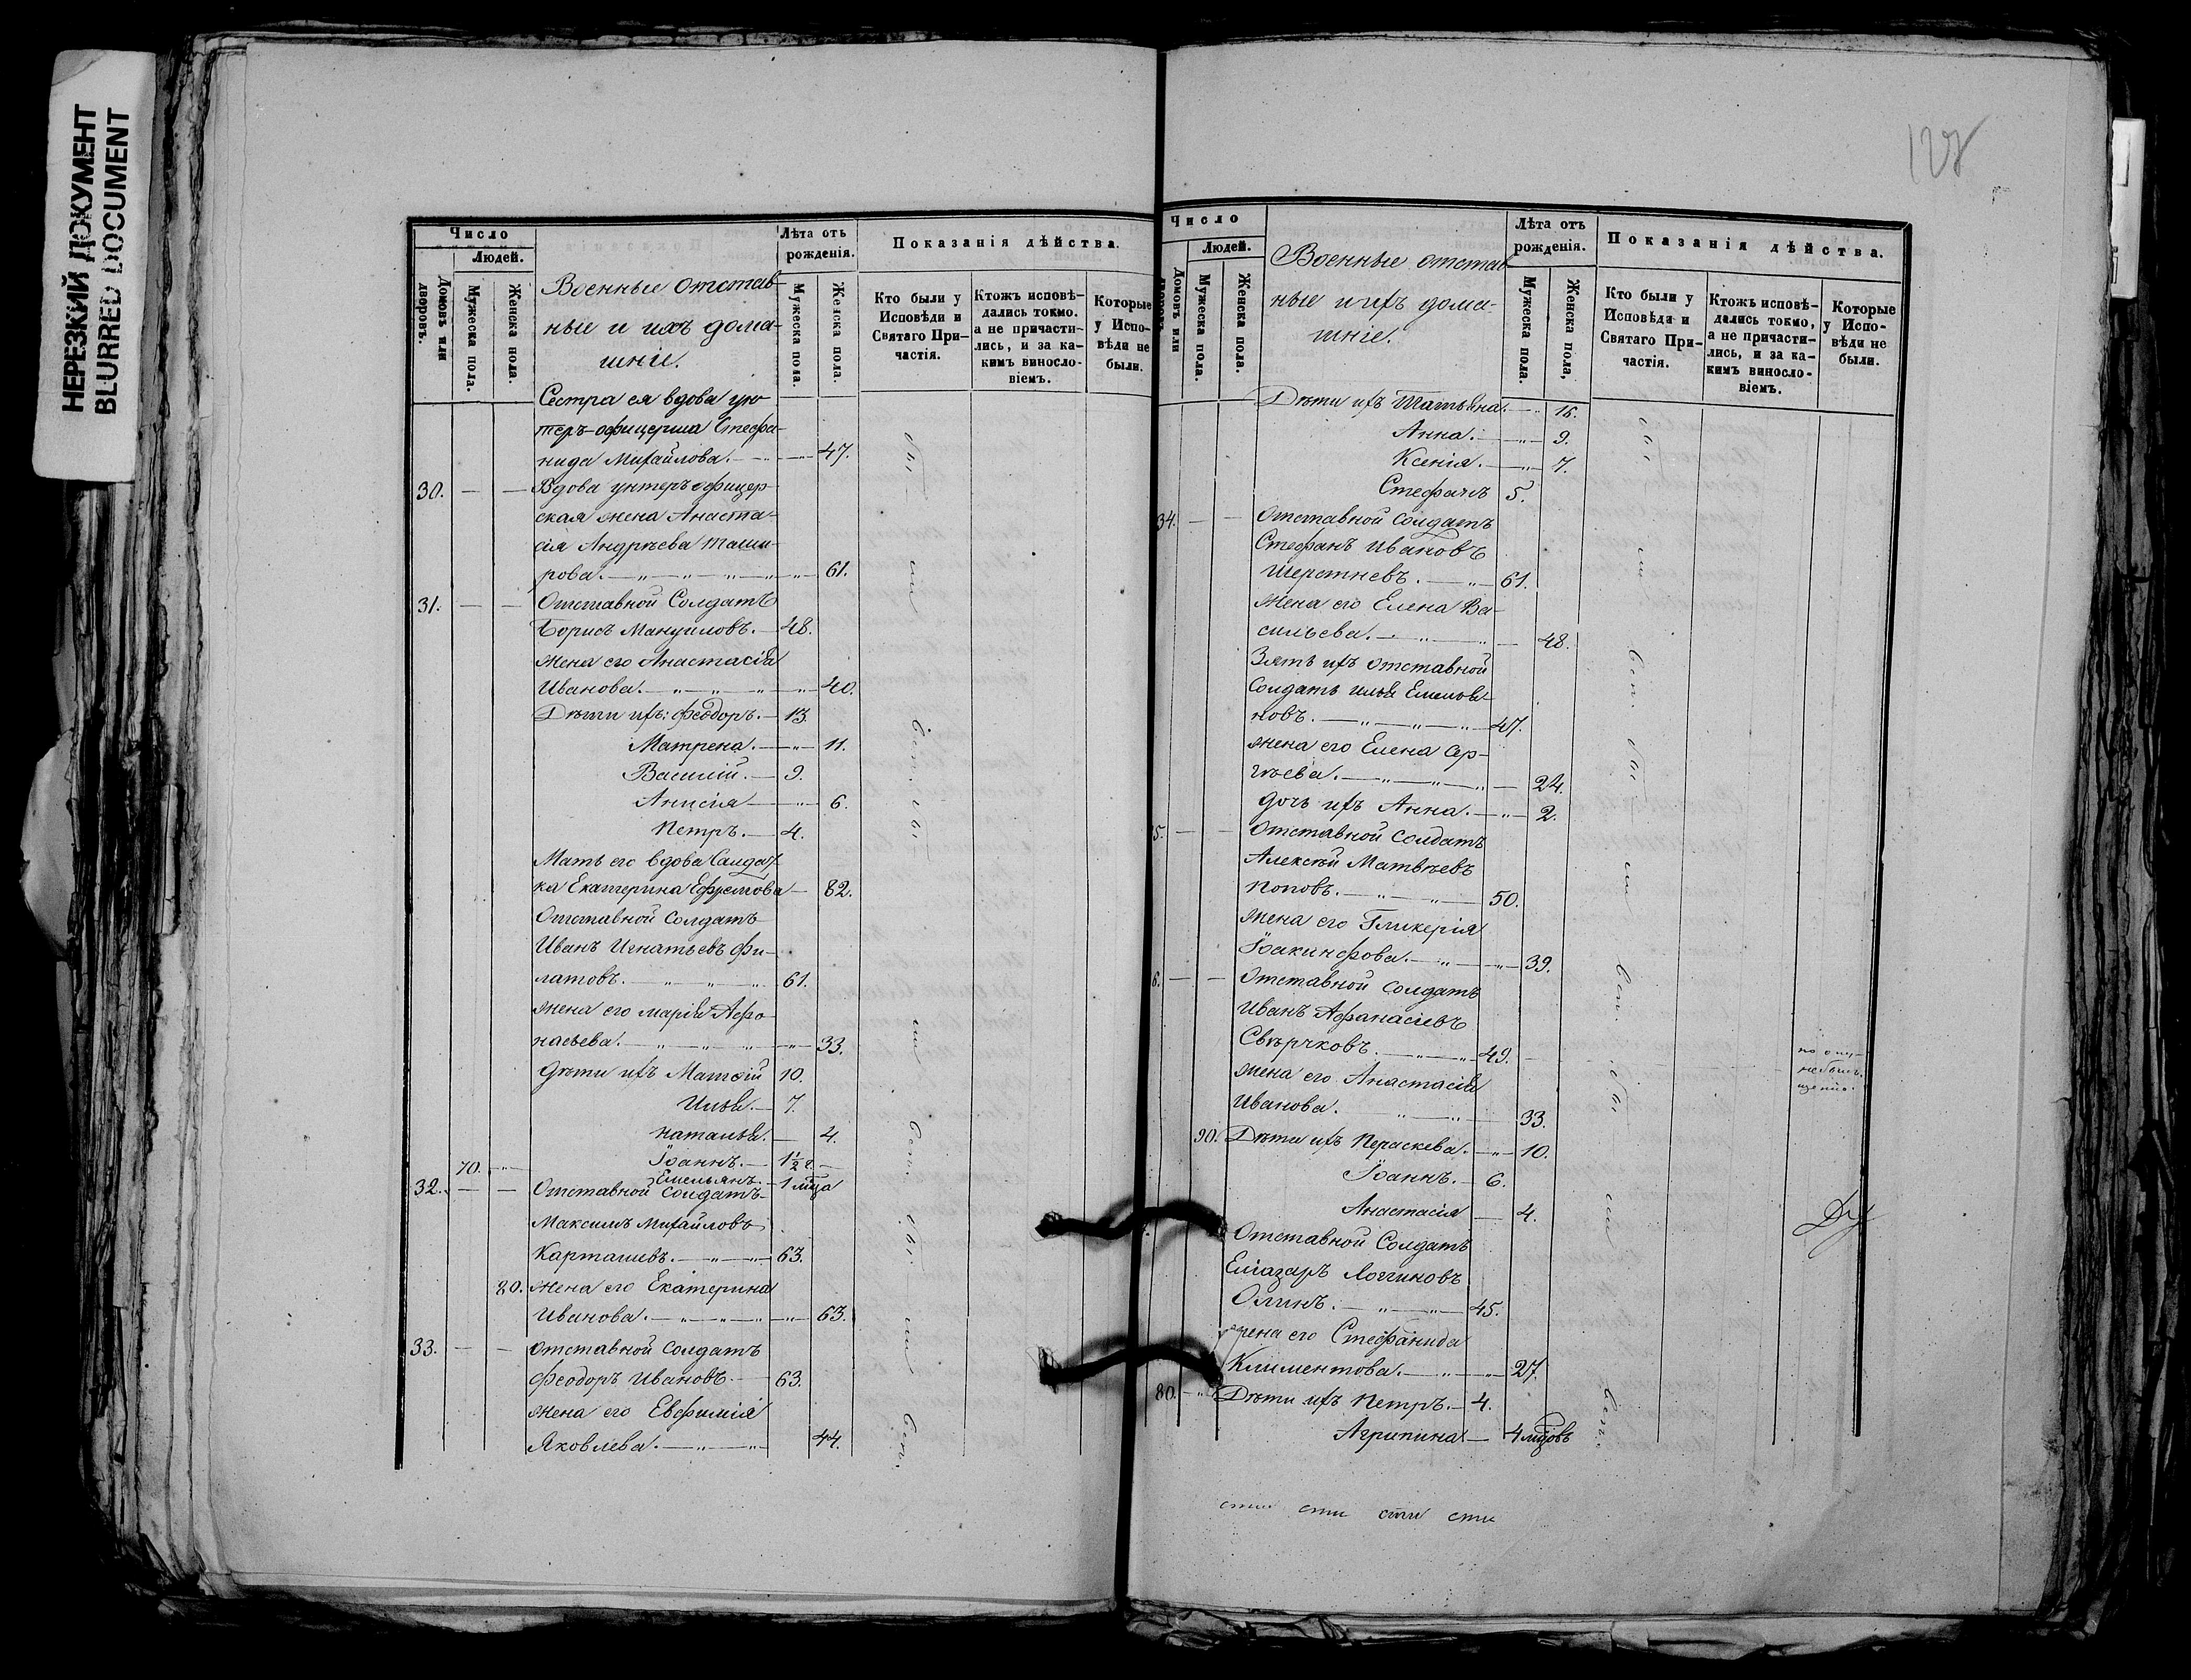 НЕРЕЗКИЙ ДОКУМЕНТ
BLURRED DOCUMENT
Число
Людей.
Домовъ или дворовъ.
Мужеска пола.
Женска пола.
Военные отстав-
ные и ихъ дома-
шніе.
Лѣта отъ рожденія.
Мужеска пола.
Женска пола.
Показанія дѣйства.
Кто были у Исповѣди и Святаго При-частія.
Ктожъ исповѣ-дались токмо, а не причасти-лись, и за ка-кимъ винословіемъ.
Которые у Испо-вѣди не были.
Сестра ея вдова ун-
теръ-офицерша Стефа-
нида Михайлова. 47.
30. Вдова унтеръ офицер-
ская жена Анаста-
сія Андрѣева Таши-
рова. 61.
31. Отставной Солдатъ
Борисъ Мануиловъ. 48.
жена его Анастасія
Иванова. 40.
Дѣти ихъ: Феодоръ. 13.
Матрена. 11.
Василій. 9.
Анисія 6.
Петръ. 4.
Мать его вдова Салдат-
ка Екатерина Ефремова 82.
Отставной Солдатъ
Иванъ Игнатьевъ Фи-
латовъ. 61.
жена его Марія Афо-
насьева. 33.
Дѣти ихъ Матѳій 10.
Илья. 7.
Наталья. 4.
70. Іоаннъ. 1½ г.
Емельянъ. 1 мца
32. Отставной солдатъ
Максимъ Михайловъ
Карташевъ. 63.
80. жена его Екатерина
Иванова. 63.
33. Отставной Солдатъ
Феодоръ Ивановъ. 63.
жена его Евфимія
Яковлева. 44.
Число
Людей.
Домовъ или
Мужеска пола.
Женска пола.
Военные отстав
ные и ихъ дома-
шніе.
Лѣта отъ рожденія.
Мужеска пола.
Женска пола,
Показанія дѣйства.
Кто были у Исповѣди и Святаго При-частія.
Ктожъ исповѣ-дались токмо, а не причасти-лись, и за ка-кимъ винословіемъ.
Которые у Испо-вѣди не были.
Дѣти ихъ Татьяна. 16.
Анна. 9.
Ксенія. 7.
Стефанъ 5.
34. Отставной Солдатъ
Стефанъ Ивановъ
Шерстневъ. 61.
жена его Елена Ва-
сильева. 48.
Зять ихъ отставной
Солдатъ Илья Емелья-
новъ. 47.
жена его Елена Сер-
гѣева. 24.
дочь ихъ Анна. 2.
5. Отставной Солдатъ
Алексѣй Матвѣевъ
Поповъ. 50.
жена его Гликерія
Іоакинфова. 39.
6. Отставной солдатъ
Иванъ Афанасіевъ
Свѣрчковъ. 49.
жена его Анастасія
Иванова. 33.
90. Дѣти ихъ Параскева. 10.
Іоаннъ. 6.
Анастасія 4.
Отставной Солдатъ
Еліазаръ Логгиновъ
Олинъ. 45.
жена его Стефанида
Климентова. 27.
80. Дѣти ихъ Петръ. 4.
Агрипина 4 мцовъ
сти сти сти сти